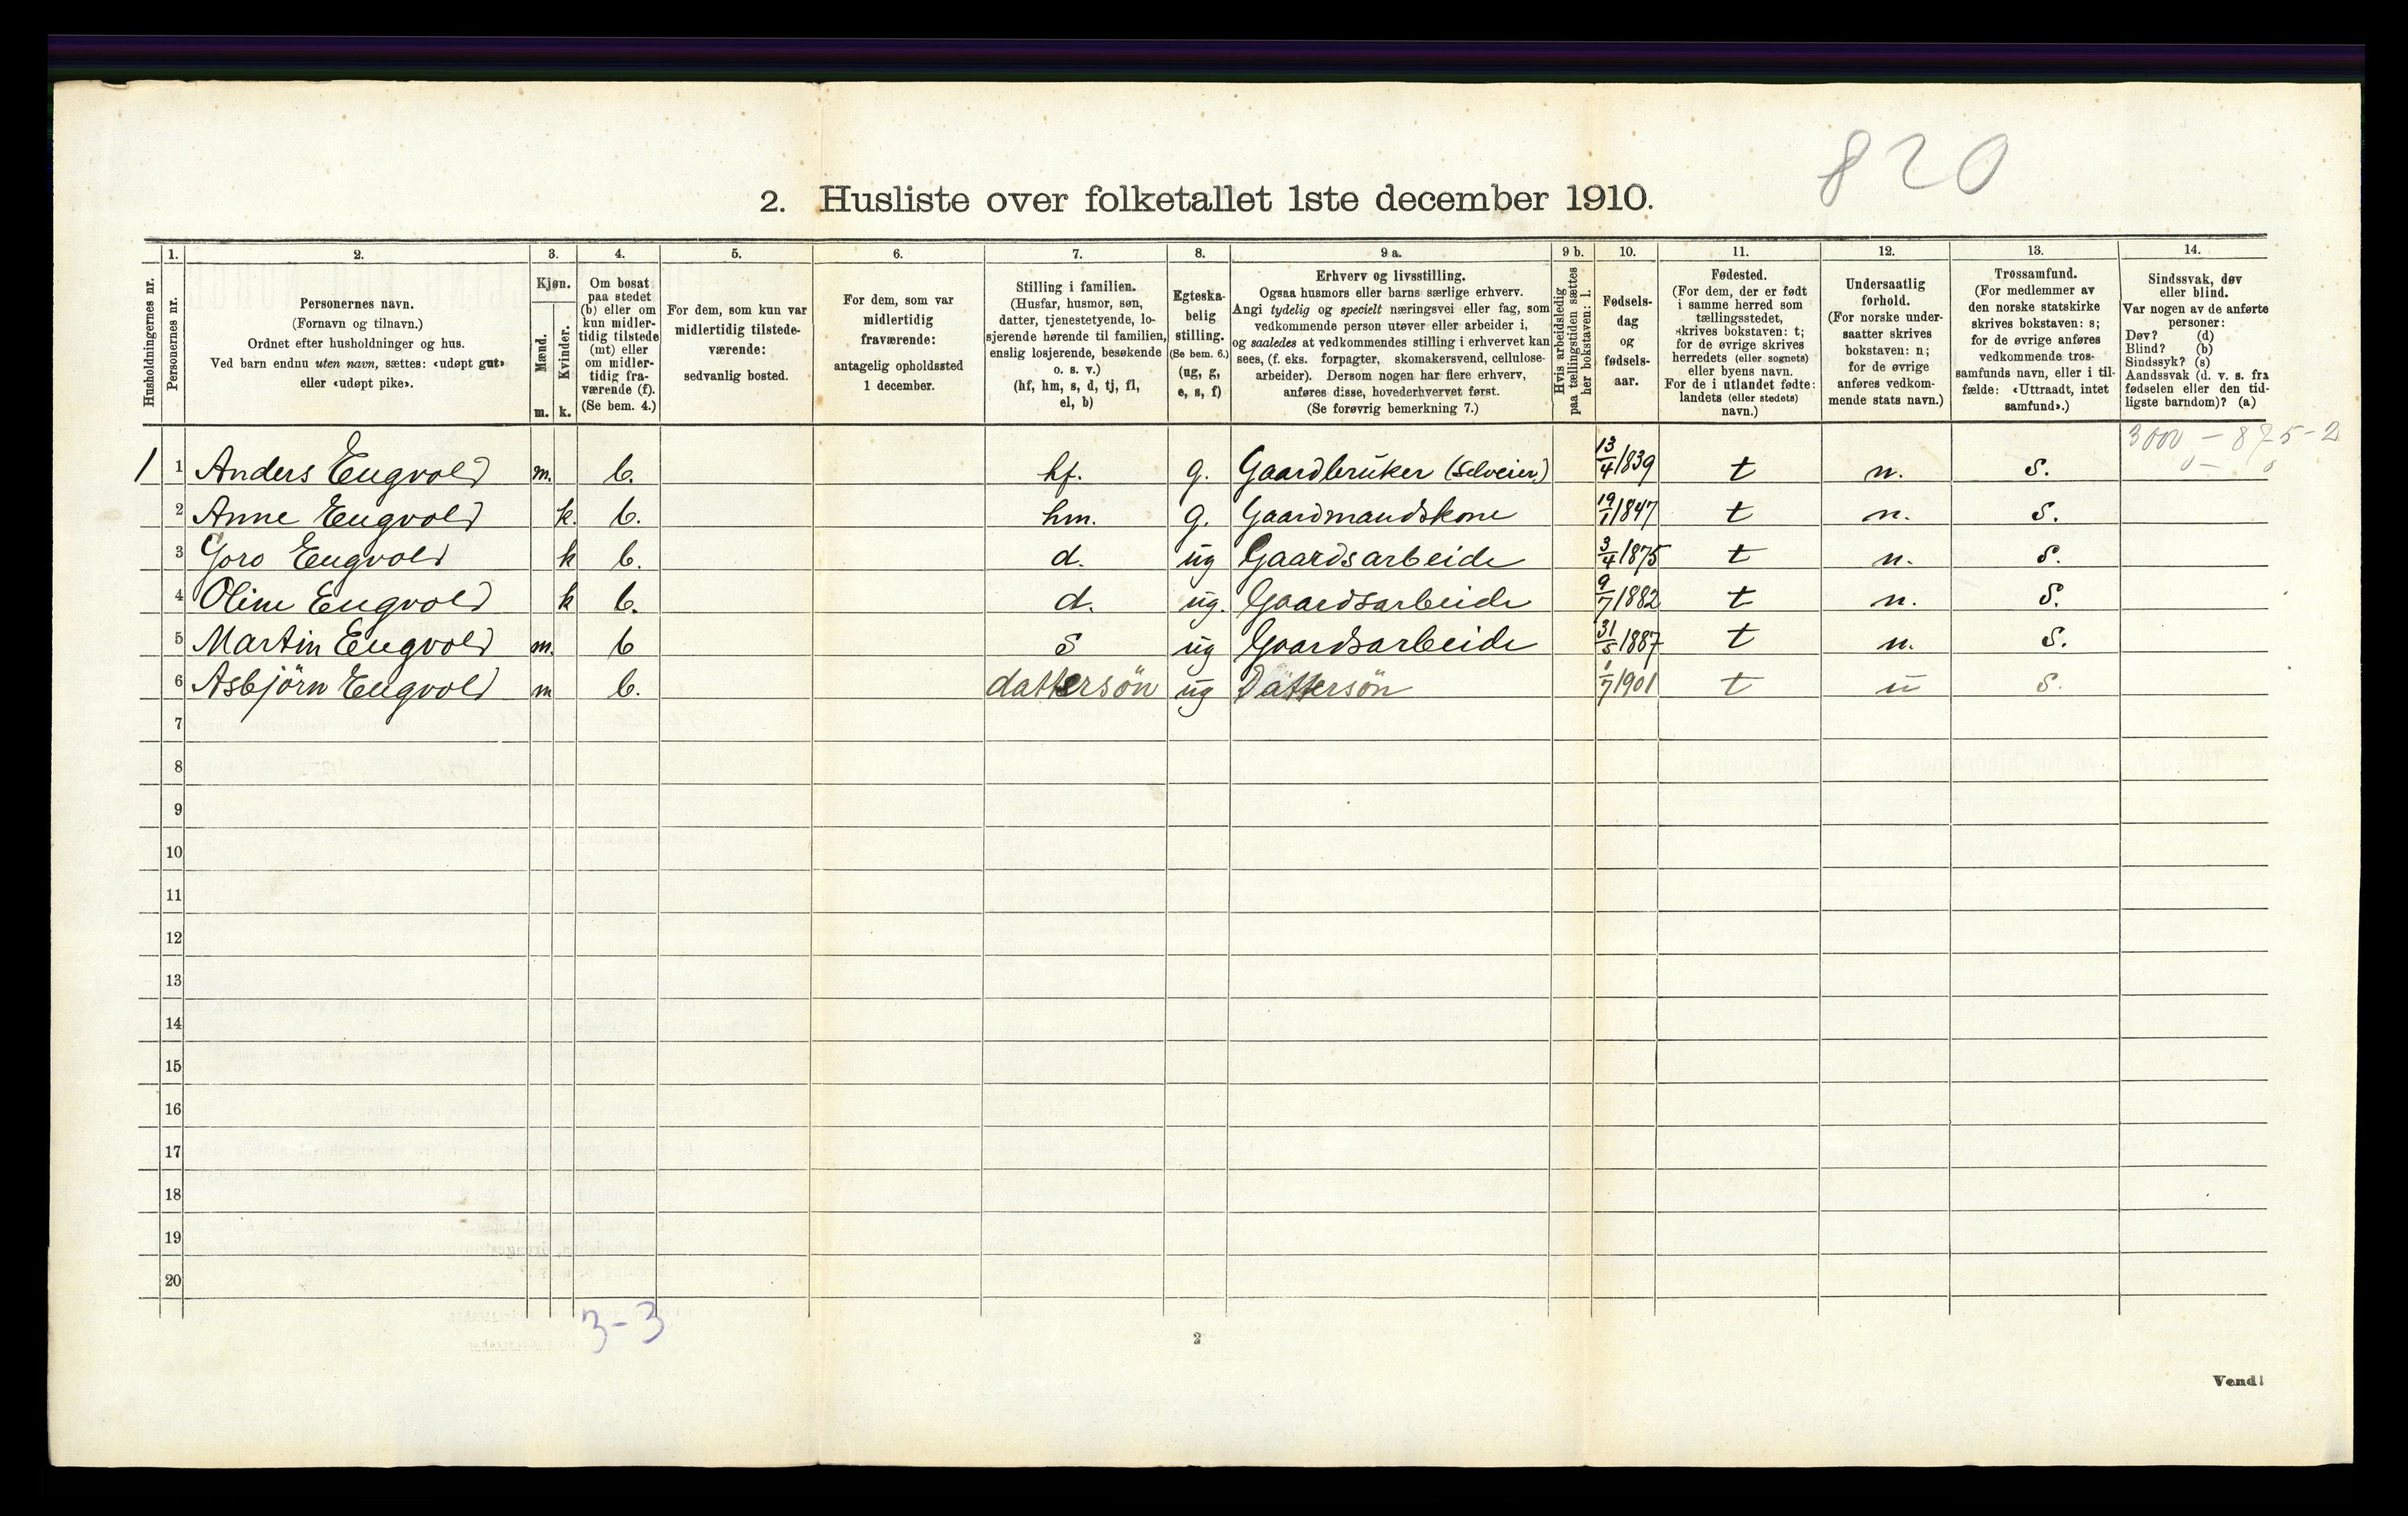 820
2. Husliste over folketallet 1ste december 1910.
Husholdningernes nr.
1.
Personernes nr.
2.
Personernes navn.
(Fornavn og tilnavn.)
Ordnet efter husholdninger og hus.
Ved barn endnu uten navn, sættes: «udøpt gut»
eller «udøpt pike».
3.
Kjøn.
Mænd.
m.
Kvinder.
k.
4.
Om bosat
paa stedet
(b) eller om
kun midler-
tidig tilstede
(mt) eller
om midler-
tidig fra-
værende (f).
(Se bem. 4.)
5.
For dem, som kun var
midlertidig tilstede-
værende:
sedvanlig bosted.
6.
For dem, som var
midlertidig
fraværende:
antagelig opholdssted
1 december.
7.
Stilling i familien.
(Husfar, husmor, søn,
datter, tjenestetyende, lo-
sjerende hørende til familien,
enslig losjerende, besøkende
o. s. v.)
(hf, hm, s, d, tj, fl,
el, b)
8.
Egteska-
belig
stilling.
(Se bem. 6.)
(ug, g,
e, s, f)
9 a.
Erhverv og livsstilling.
Ogsaa husmors eller barns særlige erhverv.
Angi tydelig og specielt næringsvei eller fag, som
vedkommende person utøver eller arbeider i,
og saaledes at vedkommendes stilling i erhvervet kan
sees, (f. eks. forpagter, skomakersvend, cellulose-
arbeider). Dersom nogen har flere erhverv,
anføres disse, hovederhvervet først.
(Se forøvrig bemerkning 7.)
9 b.
Hvis arbeidsledig
paa tællingstiden sættes
her bokstaven: l.
10.
Fødsels-
dag
og
fødsels-
aar.
11.
Fødested.
(For dem, der er født
i samme herred som
tællingsstedet,
skrives bokstaven: t;
for de øvrige skrives
herredets (eller sognets)
eller byens navn.
For de i utlandet fødte:
landets (eller stedets)
navn.)
12.
Undersaatlig
forhold.
(For norske under-
saatter skrives
bokstaven: n;
for de øvrige
anføres vedkom-
mende stats navn.)
13.
Trossamfund.
(For medlemmer av
den norske statskirke
skrives bokstaven: s;
for de øvrige anføres
vedkommende tros-
samfunds navn, eller i til-
fælde: «Uttraadt, intet
samfund».)
14.
Sindssvak, døv
eller blind.
Var nogen av de anførte
personer:
Døv? (d)
Blind? (b)
Sindssyk? (s)
Aandssvak (d. v. s. fra
fødselen eller den tid-
ligste barndom)? (a)
3000 - 875-2
1 1 Anders Engvold m. b. hf. g. Gaardbruker (Selveier) 13/4 1839 t n. s.
2 Anne Engvold k. b. hm. g. Gaardmandskone 19/1 1847 t n. s.
3 Goro Engvold k b. d. ug Gaardsarbeide 3/4 1875 t n. s.
4 Oline Engvold k b. d. ug. Gaardsarbeide 9/7 1882 t n. s.
5 Martin Engvold m. b s ug Gaardsarbeide 31/5 1887 t n. s.
6 Asbjörn Engvold m b. dattersön ug Dattersön 1/7 1901 t n s.
7
8
9
10
11
12
13
14
15
16
17
18
19
20
3-3
2
Vend!